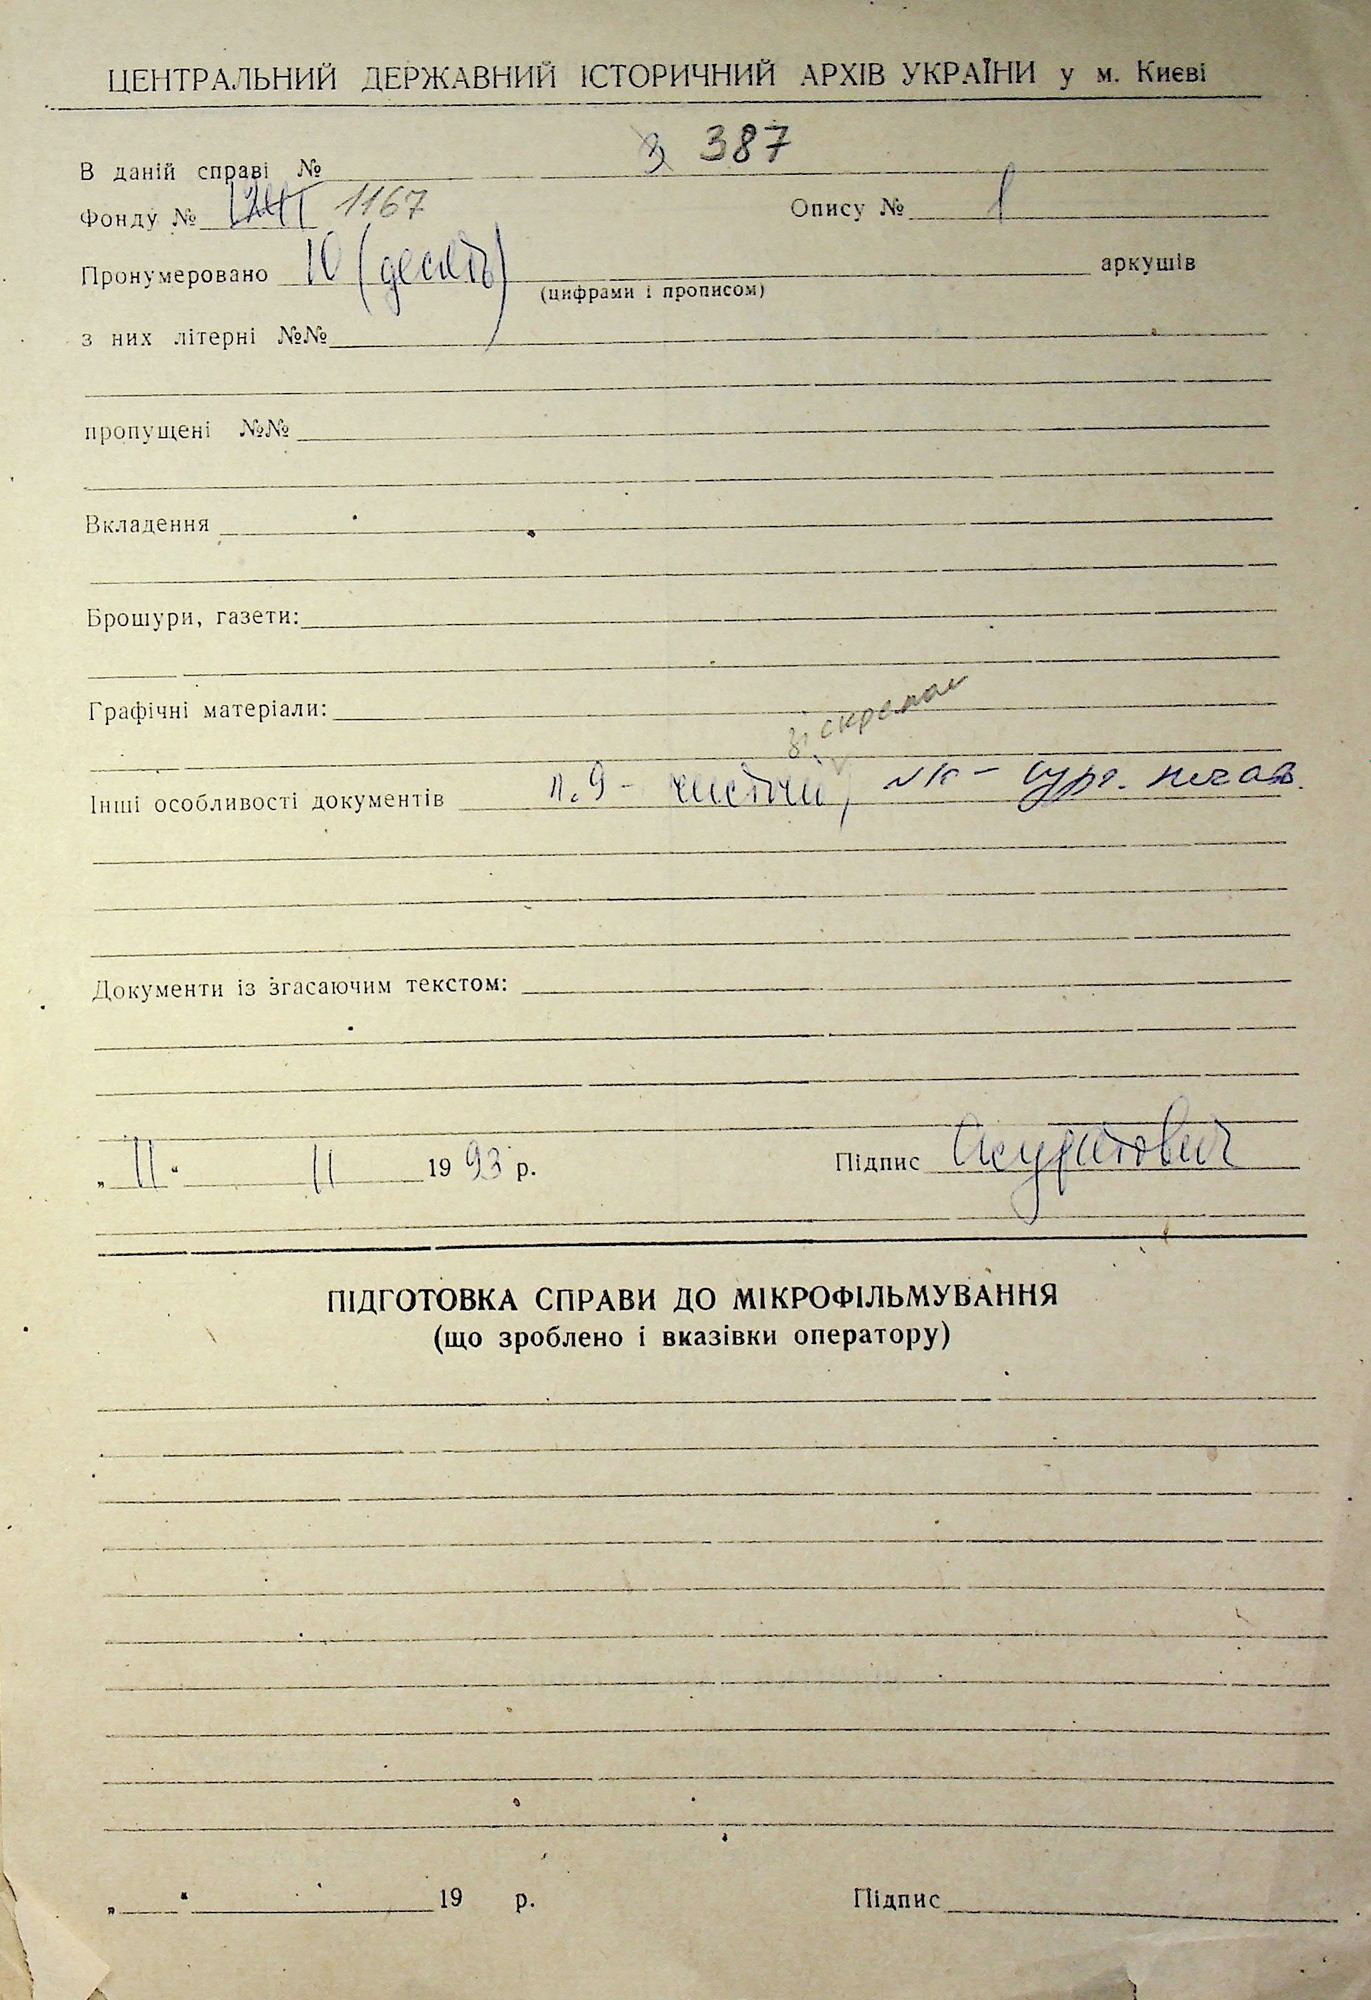 ЦЕНТРАЛЬНИЙ ДЕРЖАВНИЙ ІСТОРИЧНИЙ АРХІВ УКРАЇНИ у м. Києві
В даній справі № 387
Фонду № 1167 Опису № 1
Пронумеровано 10 (десять) аркушів
(цифрами і прописом)
з них літерні №№
пропущені №№
Вкладення
Брошури, газети:
Графічні матеріали:
Інші особливості документів п. 9 - чистий, - сург. печать.
Документи із згасаючим текстом:
„ 11 “ 11 1993 р. Підпис
ПІДГОТОВКА СПРАВИ ДО МІКРОФІЛЬМУВАННЯ
(що зроблено і вказівки оператору)
„ “ 19 р. Підпис